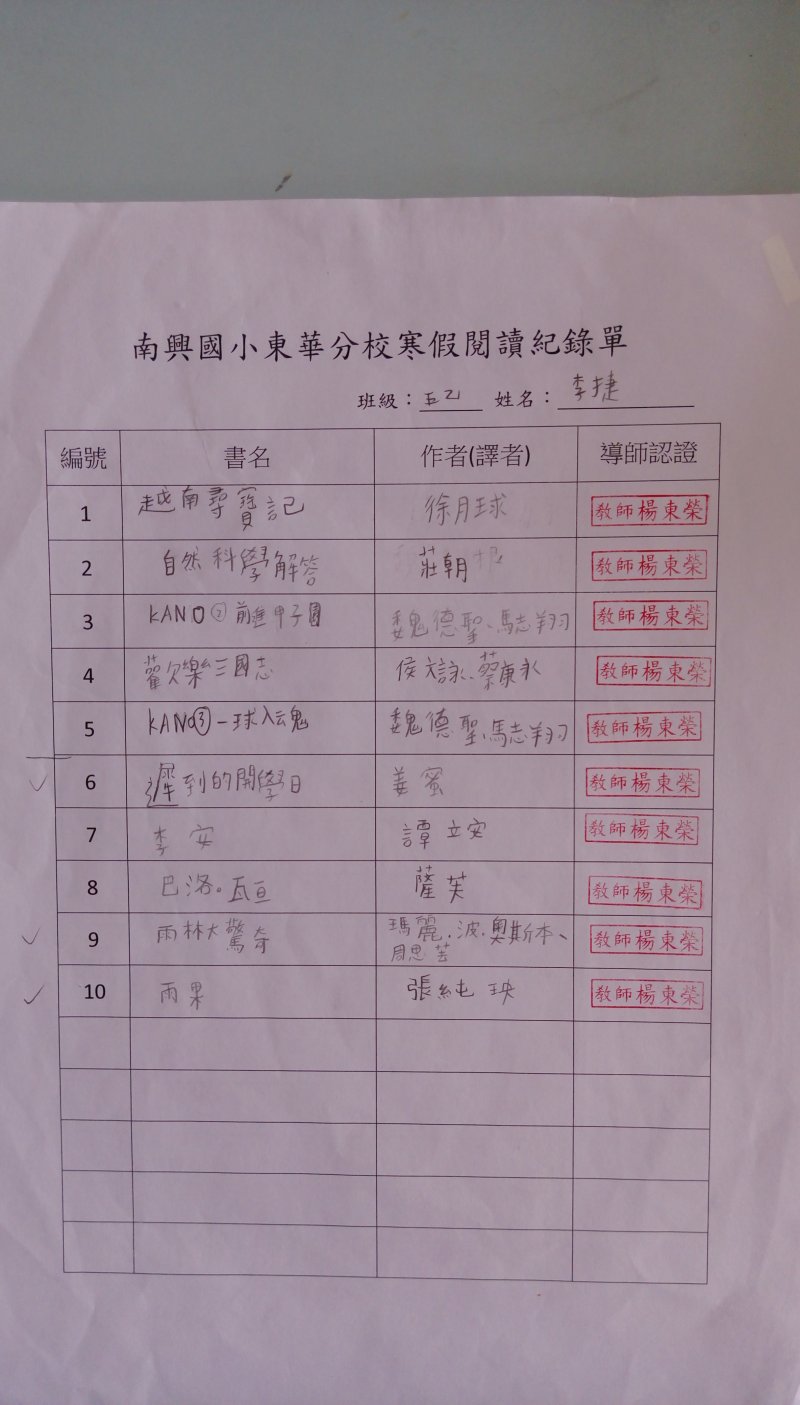 南興國小東華分校寒假閱讀紀錄單
班級：五乙 姓名：李捷
編號 書名 作者(譯者) 導師認證
1 越南尋寶記 徐月球 教師楊東榮
2 自然科學解答 莊朝根 教師楊東榮
3 KANO② 前進甲子園 魏德聖、馬志翔 教師楊東榮
4 歡樂三國志 侯文詠、蔡康永 教師楊東榮
5 KANO③一球入魂 魏德聖、馬志翔 教師楊東榮
6 遲到的開學日 姜蜜 教師楊東榮
7 李安 譚立安 教師楊東榮
8 巴洛。瓦旦 薩芙 教師楊東榮
9 雨林大驚奇 瑪麗.波.奧斯本、
周思芸 教師楊東榮
10 雨果 張純玦 教師楊東榮